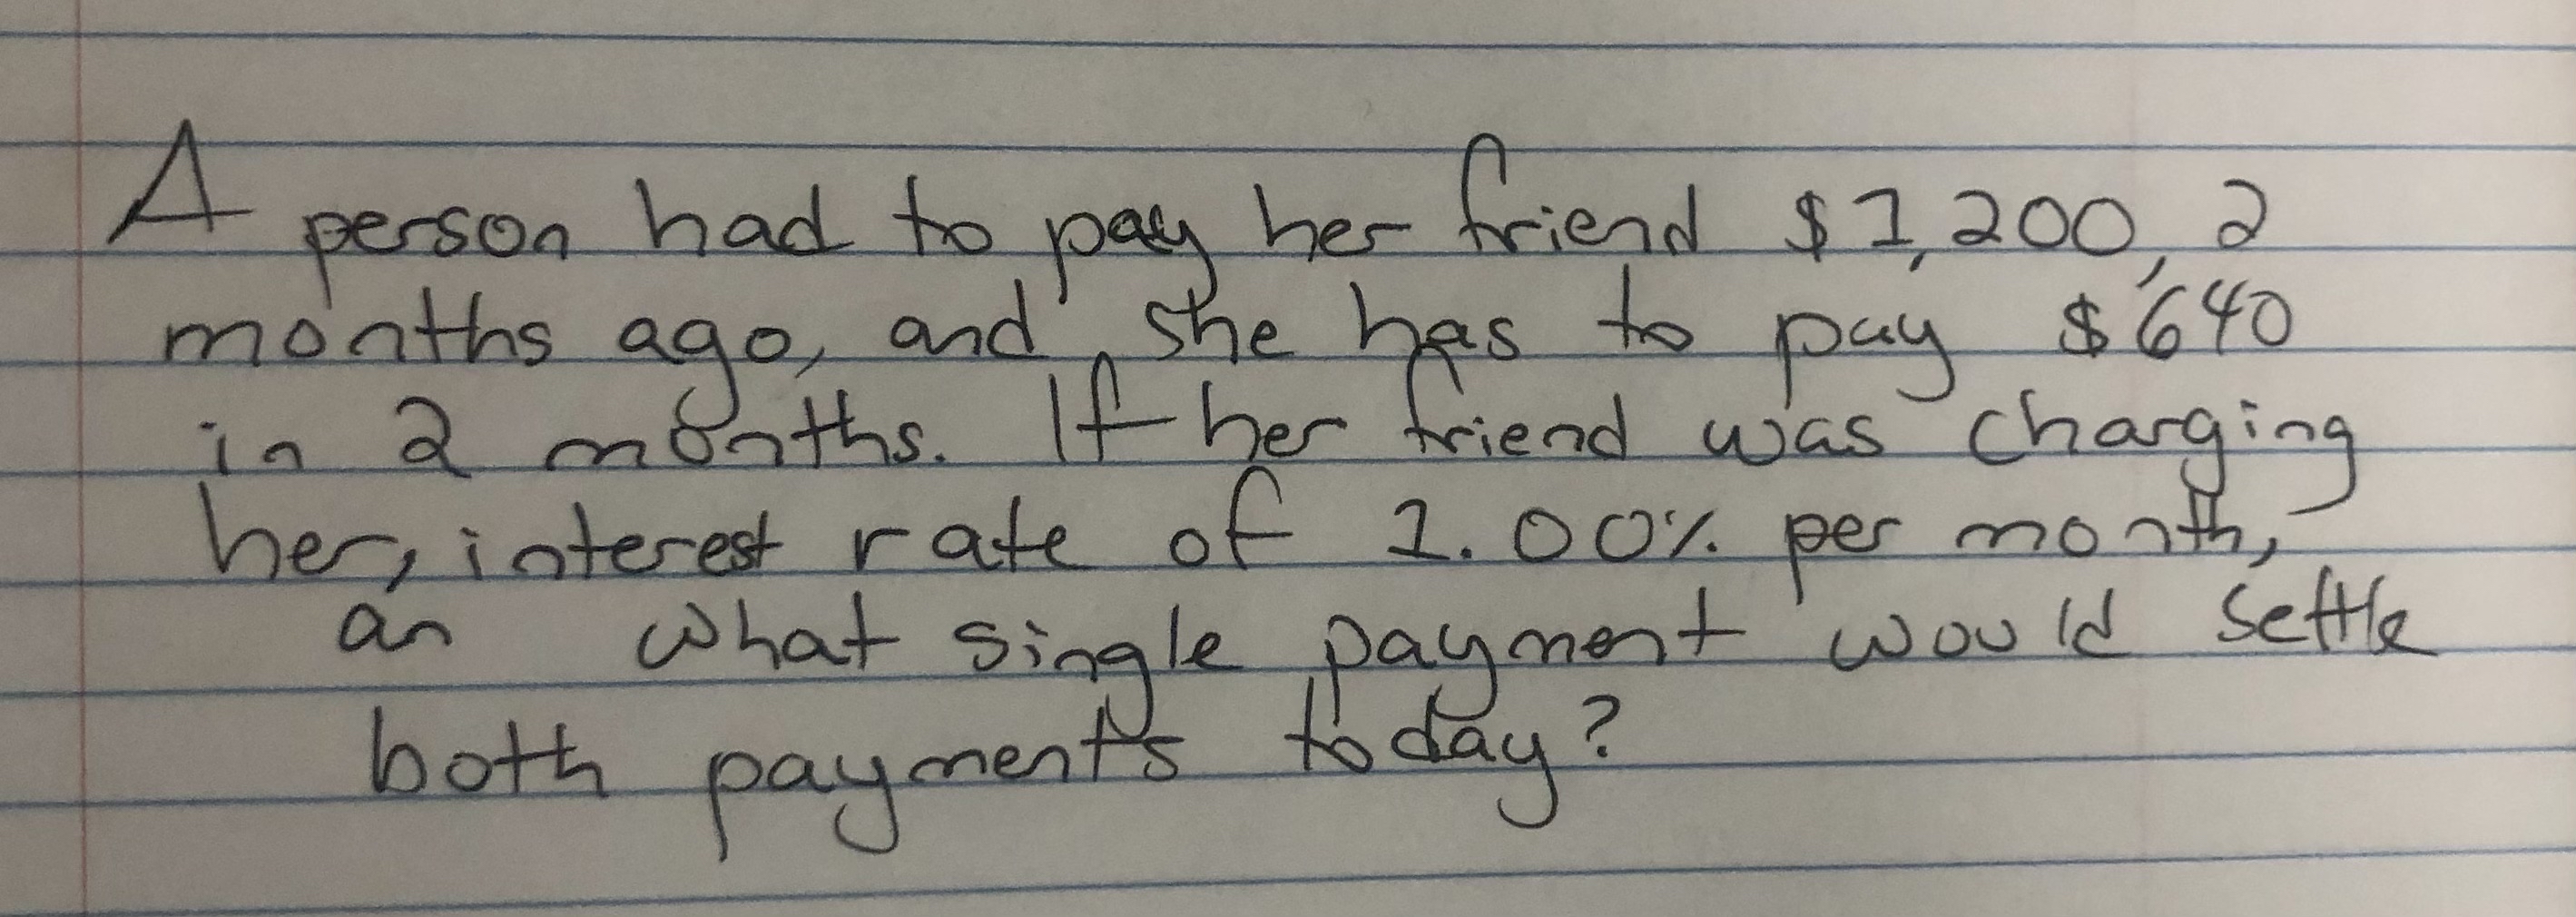 A person had to pay her friend $1,200, 2
months ago, and she has to pay $640
in 2 months. If her friend was charging
her, interest rate of 1.00% per month,
an what single payment would settle
both payments today?